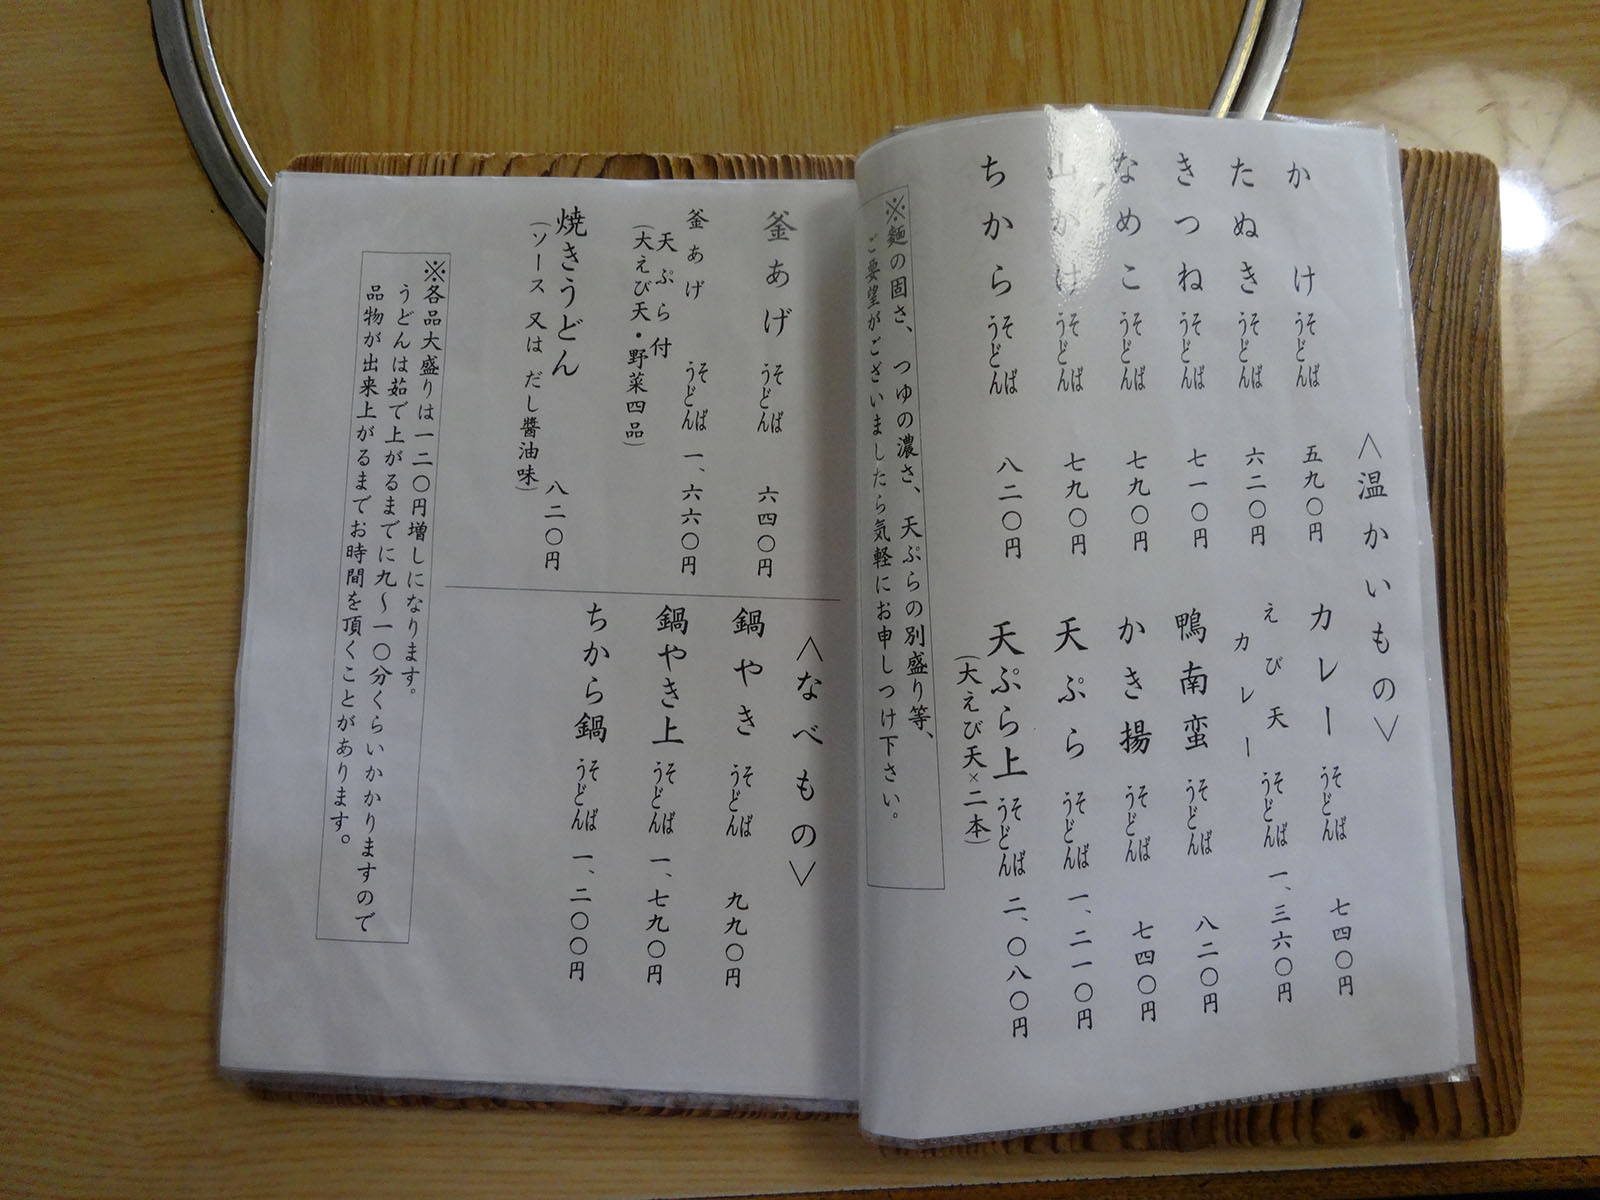 ＜温かいもの＞
かけ そば うどん 五九〇円
たぬき そば うどん 六二〇円
きつね そば うどん 七一〇円
なめこ そば うどん 七九〇円
山かけ そば うどん 七九〇円
ちから そば うどん 八二〇円
カレー そば うどん 七四〇円
えび天カレー そば うどん 一、三六〇円
鴨南蛮 そば うどん 八二〇円
かき揚 そば うどん 七四〇円
天ぷら そば うどん 一、二一〇円
天ぷら上 そば うどん 二、〇八〇円
（大えび天×二本）
※麺の固さ、つゆの濃さ、天ぷらの別盛り等、
ご要望がございましたら気軽にお申しつけ下さい。
釜あげ そば うどん 六四〇円
釜あげ そば うどん 一、六六〇円
天ぷら付
（大えび天・野菜四品）
焼きうどん 八二〇円
（ソース 又は だし醬油味）
＜なべもの＞
鍋やき そば うどん 九九〇円
鍋やき上 そば うどん 一、七九〇円
ちから鍋 そば うどん 一、二〇〇円
※各品大盛りは一二〇円増しになります。
うどんは茹で上がるまでに九～一〇分くらいかかりますので
品物が出来上がるまでお時間を頂くことがあります。